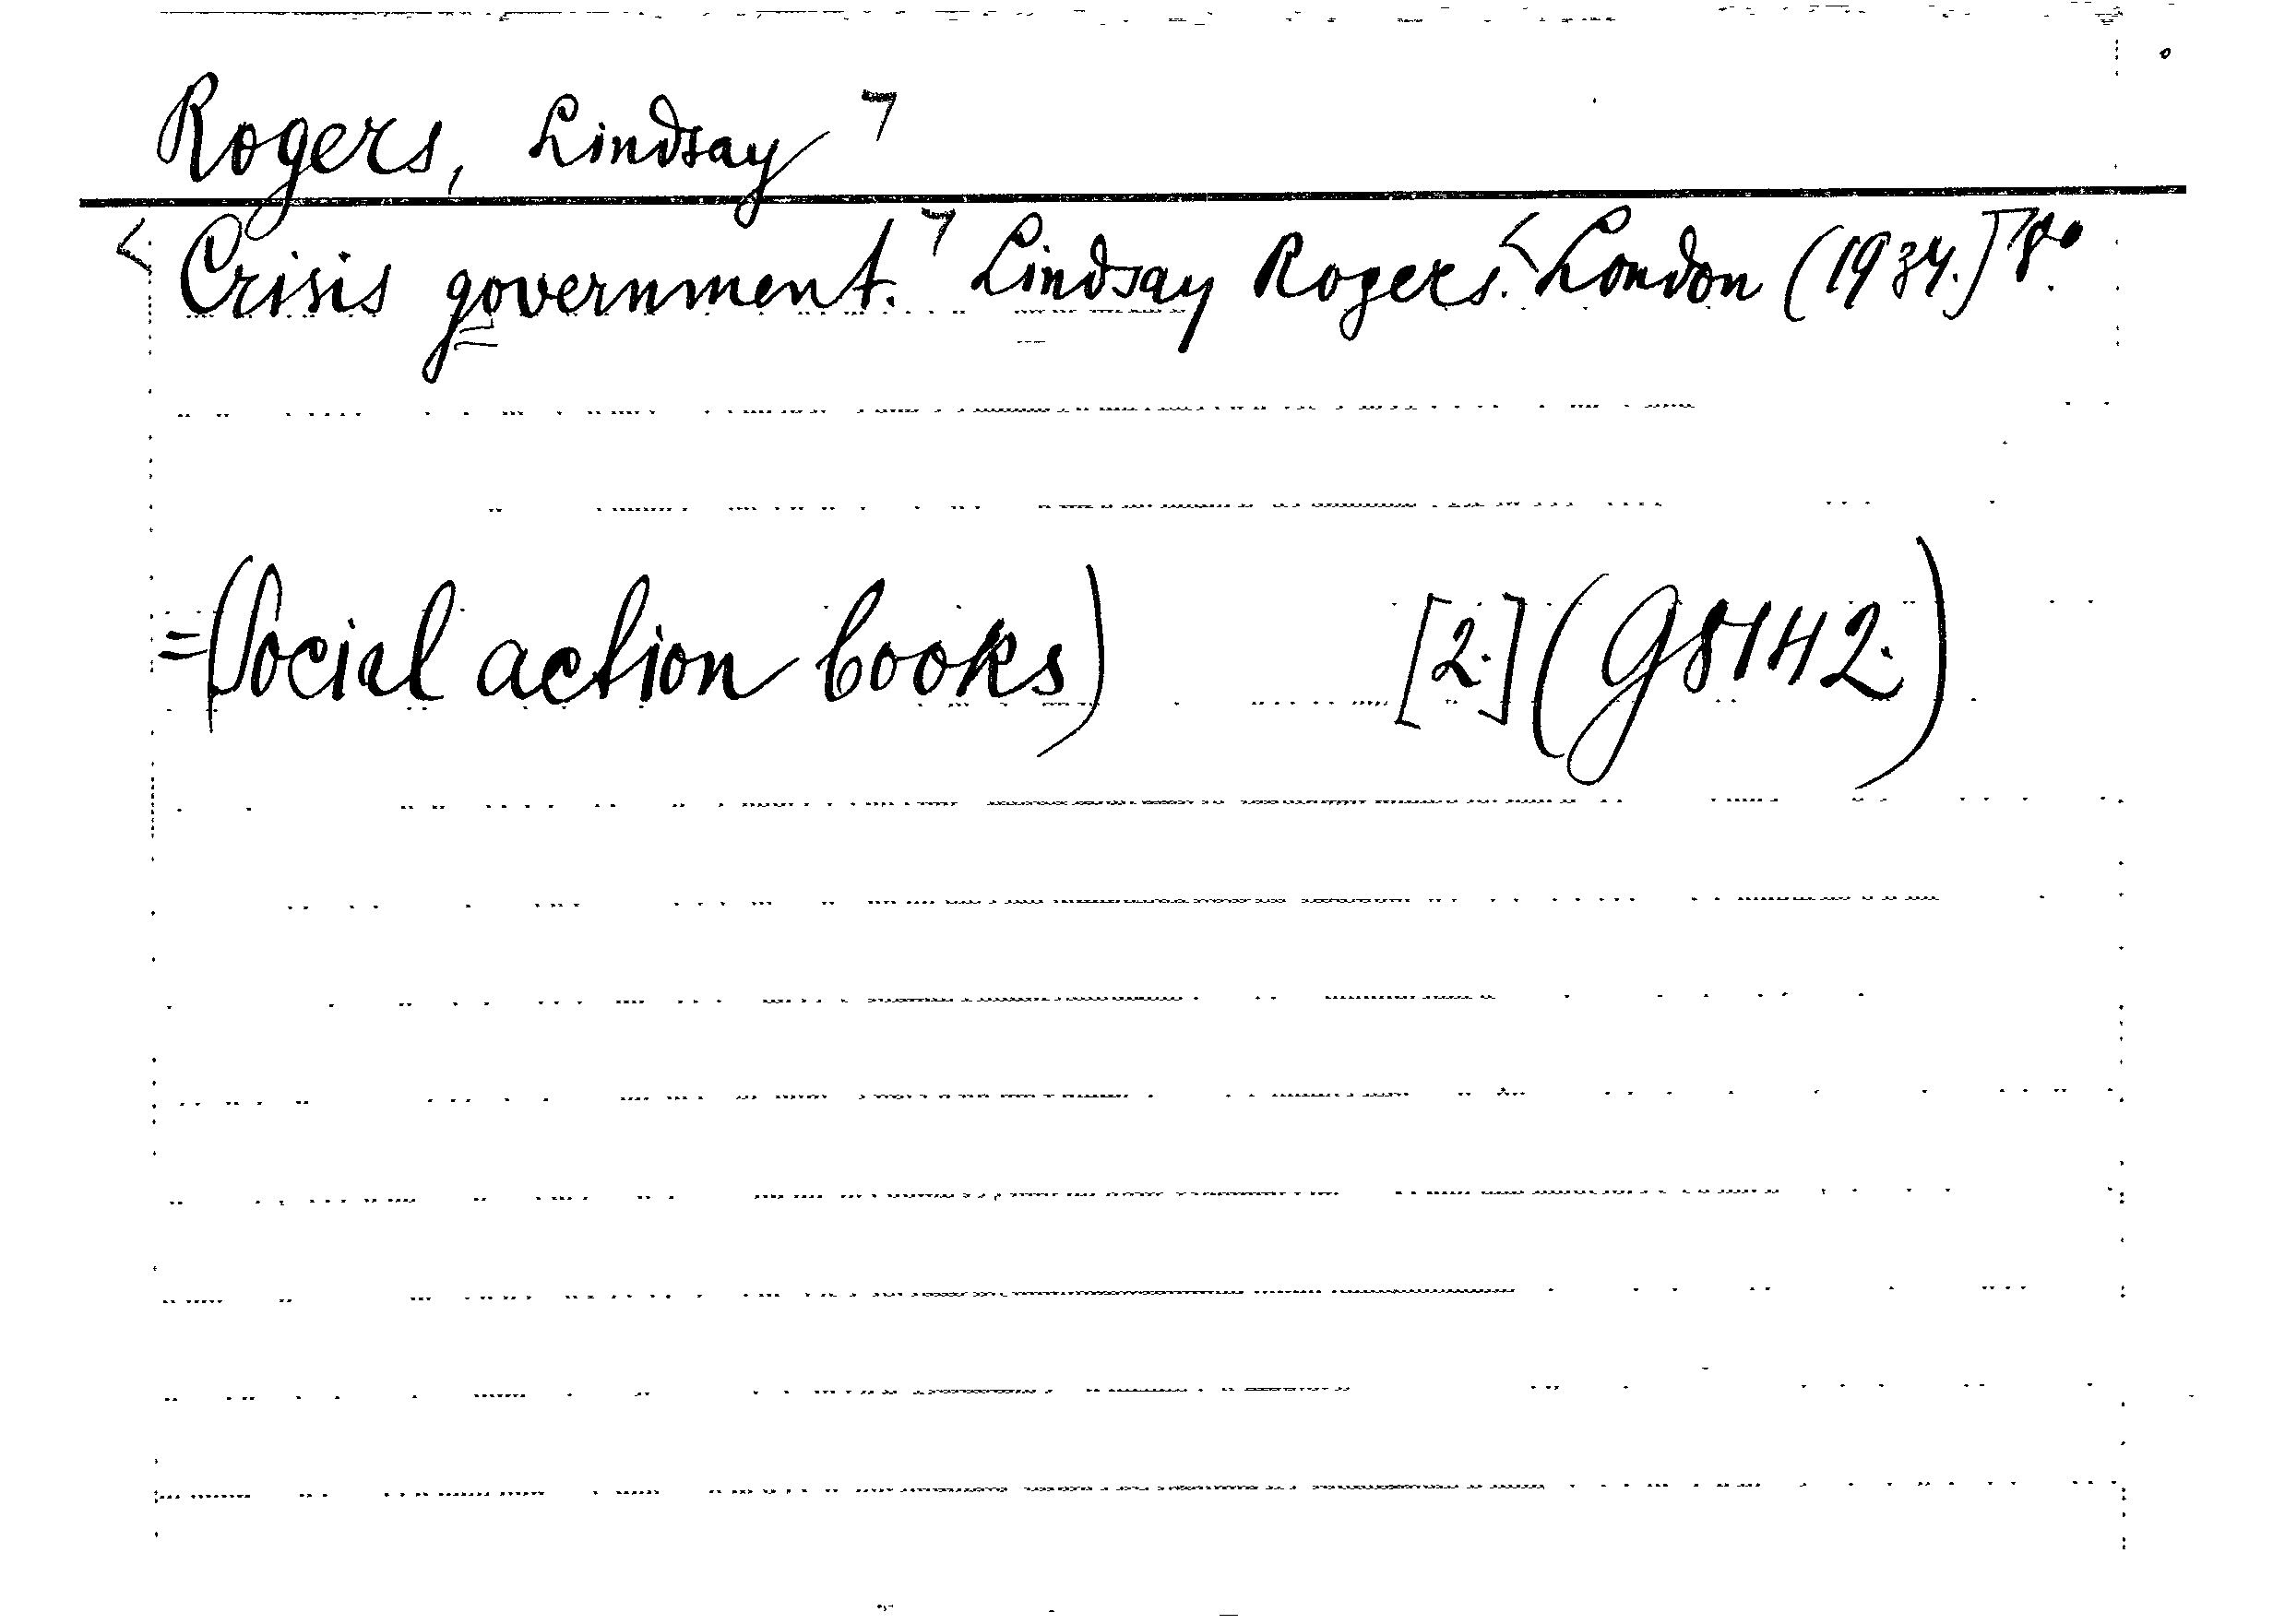 Rogers, Lindsay
Crisis government. Lindsay Rogers. London (1934.] 8º.
=(Social action books) [2.] (G8142.)